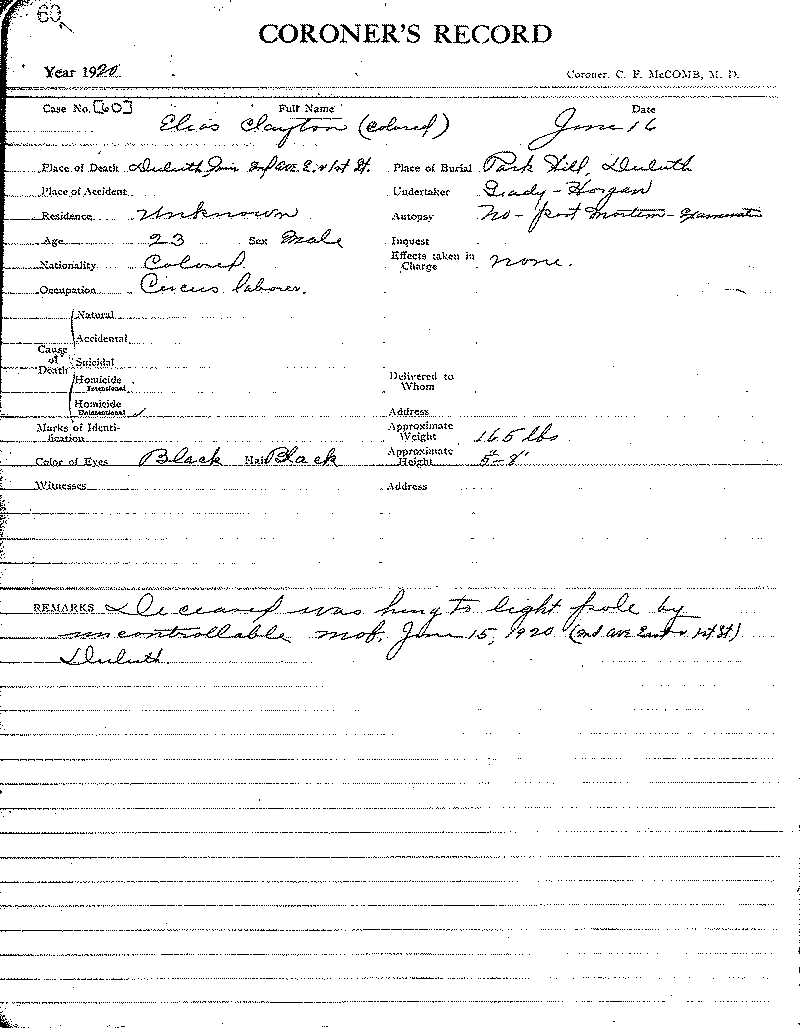 60
CORONER'S RECORD
Year 1920 Coroner, C. F. McCOMB, M. D.
Case No. [60] Full Name Date
Elias Clayton (colored) June 16
Place of Death Duluth Minn 2nd Ave. E. & 1st St. Place of Burial Park Hill, Duluth
Place of Accident Undertaker Grady - Horgan
Residence Unknown Autopsy No - post mortem - Examination
Age 23 Sex Male Inquest
Nationality Colored Effects taken in Charge none.
Occupation Circus laborer.
Cause of Death
Natural
Accidental
Suicidal
Homicide Intentional Delivered to Whom
Homicide Unintentional ✓ Address
Marks of Identification Approximate Weight 165 lbs
Color of Eyes Black Hair Black Approximate Height 5-8"
Witnesses Address
REMARKS Deceased was hung to light pole by
uncontrollable mob. June 15, 1920 (2nd Ave East & 1st St)
Duluth